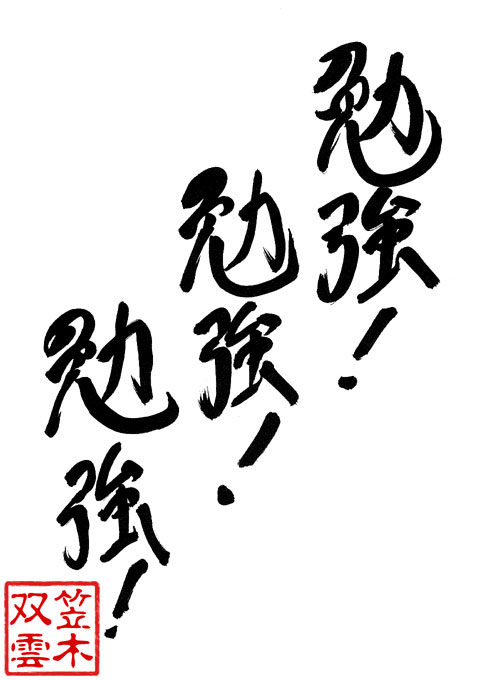 勉強!
勉強!
勉強!
笠木
双雲